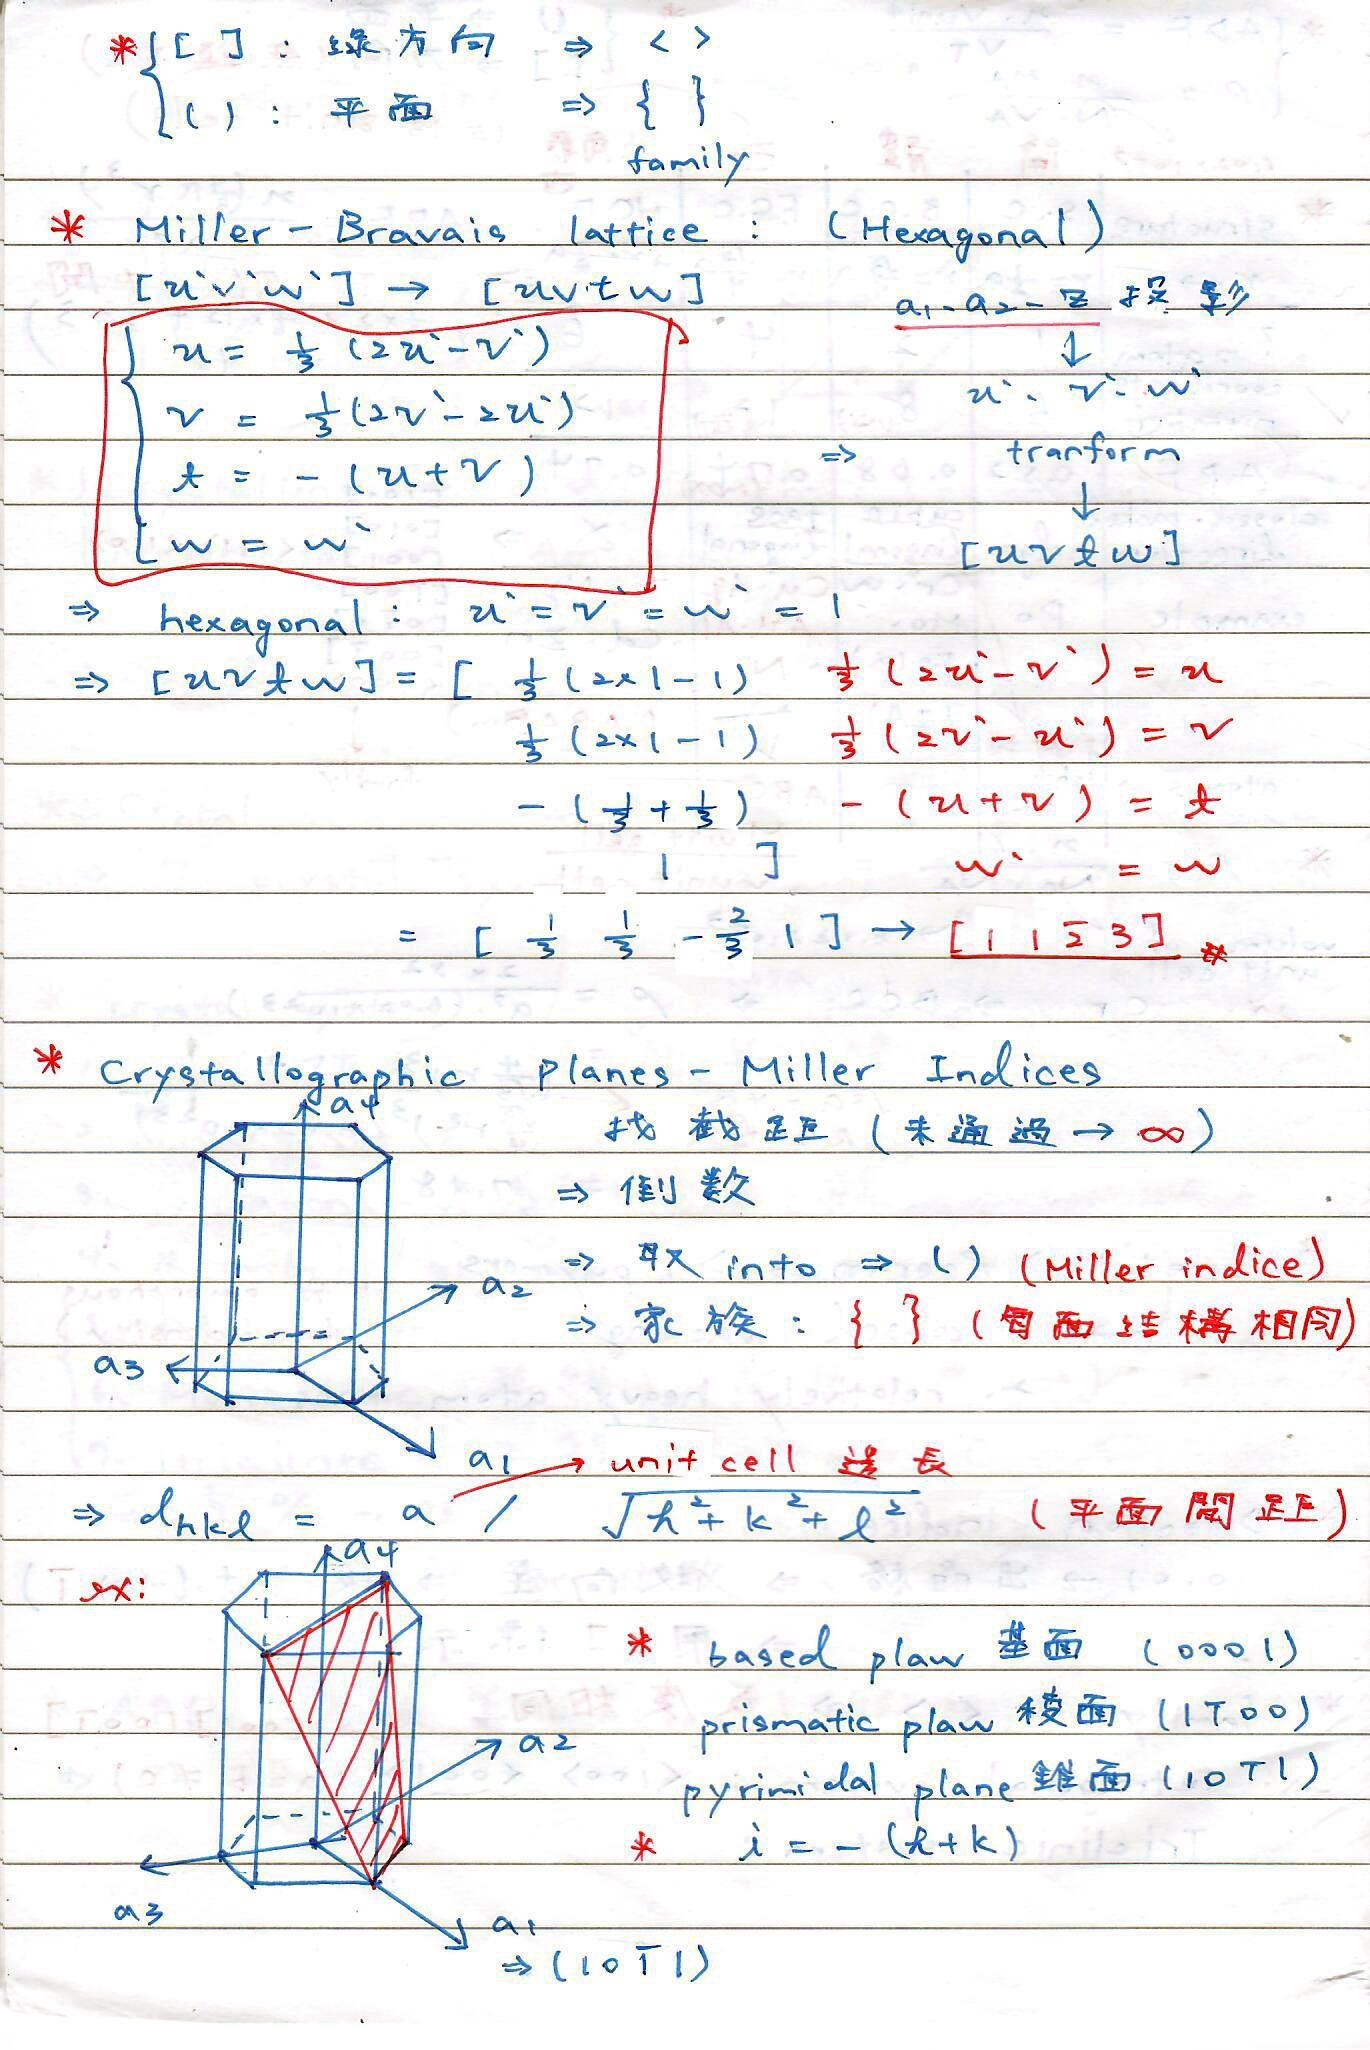 * { [ ] : 線方向 ⇒ < >
( ) : 平面 ⇒ { }
family
* Miller - Bravais lattice : (Hexagonal)
[u`v`w`] → [uvtw]
a1-a2-z 投影
↓
u = 1/3 (2u`-v`)
u` - v` - w`
v = 1/3 (2v`-2u`)
⇒ tranform
t = - (u+v)
↓
w = w`
[uvtw]
⇒ hexagonal : u` = v` = w` = 1
⇒ [uvtw] = [ 1/3 (2x1-1) 1/3 (2u`-v`) = u
1/3 (2x1-1) 1/3 (2v`-u`) = v
- (1/3 + 1/3) - (u+v) = t
1 ] w` = w
= [ 1/3 1/3 -2/3 1 ] → [ 1 1 2̅ 3 ] #
* Crystallographic Planes - Miller Indices
a4
找截距 (未通過 → ∞)
⇒ 倒数
⇒ 取 into ⇒ ( ) (Miller indice)
a2
⇒ 家族 : { } (每面結構相同)
a3
a1 → unit cell 邊長
⇒ dhkl = a / √h²+k²+l² (平面間距)
a4
ex:
* based plaw 基面 (0001)
prismatic plaw 稜面 (11̅00)
a2
pyrimidal plane 錐面 (101̅1)
* i = - (h+k)
a3
a1
⇒ (101̅1)